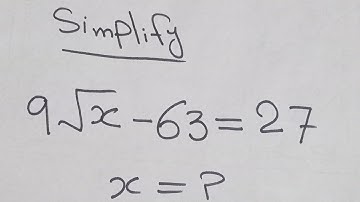 Simplify
9√x - 63 = 27
x = ?